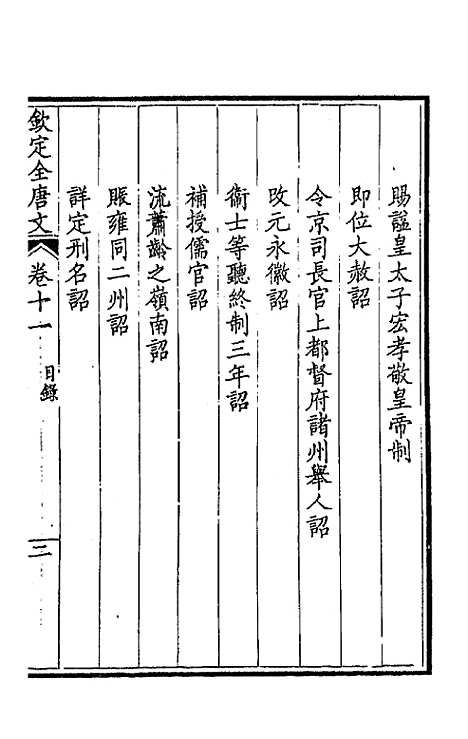 賜諡皇太子宏孝敬皇帝制
即位大赦詔
令京司長官上都督府諸州舉人詔
改元永徽詔
衞士等聽終制三年詔
補授儒官詔
流蕭齡之嶺南詔
賑雍同二州詔
詳定刑名詔
欽定全唐文 卷十一 目錄 二